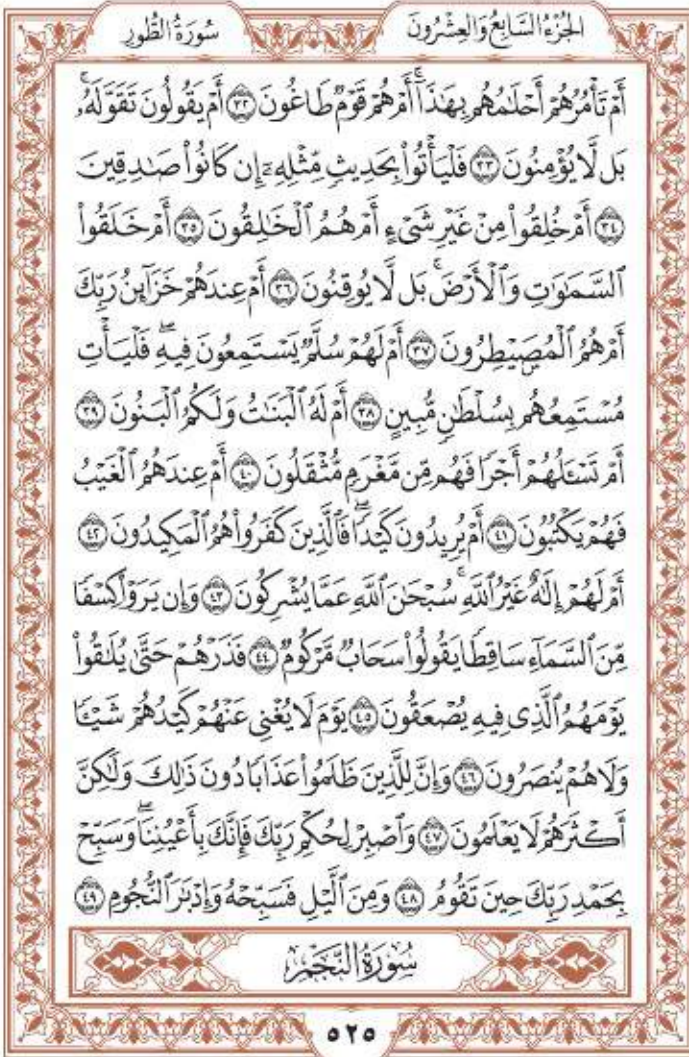 سُورَةُ الطُّورِ
الجُزْءُ السَّابِعُ وَالعِشْرُونَ
أَمْ تَأْمُرُهُمْ أَحْلَٰمُهُم بِهَٰذَآۚ أَمْ هُمْ قَوْمٌ طَاغُونَ ٣٢ أَمْ يَقُولُونَ تَقَوَّلَهُۥۚ
بَل لَّا يُؤْمِنُونَ ٣٣ فَلْيَأْتُوا۟ بِحَدِيثٍ مِّثْلِهِۦٓ إِن كَانُوا۟ صَٰدِقِينَ
٣٤ أَمْ خُلِقُوا۟ مِنْ غَيْرِ شَىْءٍ أَمْ هُمُ ٱلْخَٰلِقُونَ ٣٥ أَمْ خَلَقُوا۟
ٱلسَّمَٰوَٰتِ وَٱلْأَرْضَۚ بَل لَّا يُوقِنُونَ ٣٦ أَمْ عِندَهُمْ خَزَآئِنُ رَبِّكَ
أَمْ هُمُ ٱلْمُصَۣيْطِرُونَ ٣٧ أَمْ لَهُمْ سُلَّمٌ يَسْتَمِعُونَ فِيهِۖ فَلْيَأْتِ
مُسْتَمِعُهُم بِسُلْطَٰنٍ مُّبِينٍ ٣٨ أَمْ لَهُ ٱلْبَنَٰتُ وَلَكُمُ ٱلْبَنُونَ ٣٩
أَمْ تَسْـَٔلُهُمْ أَجْرًا فَهُم مِّن مَّغْرَمٍ مُّثْقَلُونَ ٤٠ أَمْ عِندَهُمُ ٱلْغَيْبُ
فَهُمْ يَكْتُبُونَ ٤١ أَمْ يُرِيدُونَ كَيْدًاۖ فَٱلَّذِينَ كَفَرُوا۟ هُمُ ٱلْمَكِيدُونَ ٤٢
أَمْ لَهُمْ إِلَٰهٌ غَيْرُ ٱللَّهِۚ سُبْحَٰنَ ٱللَّهِ عَمَّا يُشْرِكُونَ ٤٣ وَإِن يَرَوْا۟ كِسْفًا
مِّنَ ٱلسَّمَآءِ سَاقِطًا يَقُولُوا۟ سَحَابٌ مَّرْكُومٌ ٤٤ فَذَرْهُمْ حَتَّىٰ يُلَٰقُوا۟
يَوْمَهُمُ ٱلَّذِى فِيهِ يُصْعَقُونَ ٤٥ يَوْمَ لَا يُغْنِى عَنْهُمْ كَيْدُهُمْ شَيْـًٔا
وَلَا هُمْ يُنصَرُونَ ٤٦ وَإِنَّ لِلَّذِينَ ظَلَمُوا۟ عَذَابًا دُونَ ذَٰلِكَ وَلَٰكِنَّ
أَكْثَرَهُمْ لَا يَعْلَمُونَ ٤٧ وَٱصْبِرْ لِحُكْمِ رَبِّكَ فَإِنَّكَ بِأَعْيُنِنَاۖ وَسَبِّحْ
بِحَمْدِ رَبِّكَ حِينَ تَقُومُ ٤٨ وَمِنَ ٱلَّيْلِ فَسَبِّحْهُ وَإِدْبَٰرَ ٱلنُّجُومِ ٤٩
سُورَةُ النَّجْمِ
٥٢٥